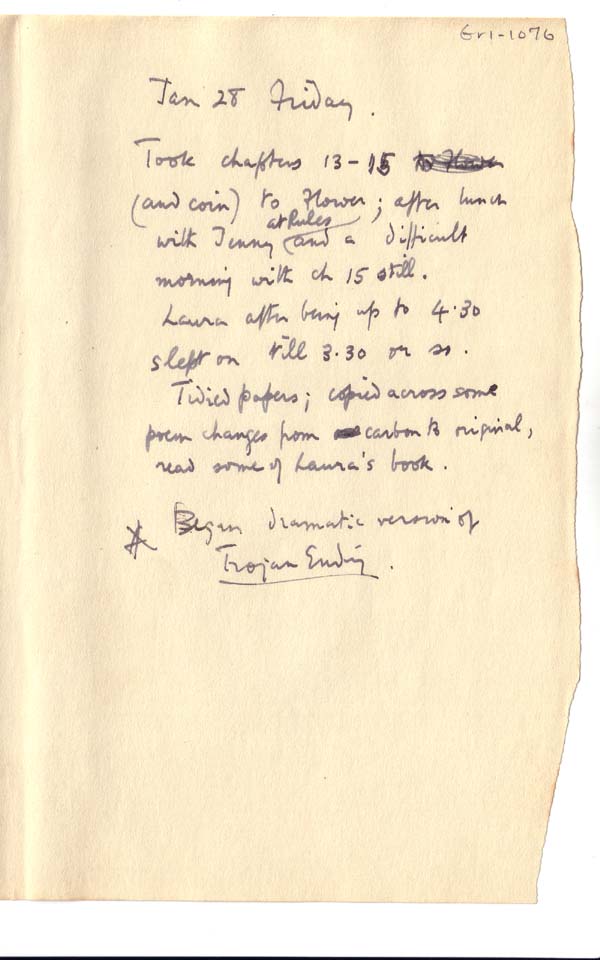 Gr1-1076
Jan 28 Friday.
Took chapters 13-15 to Flower
(and coin) to Flower; after lunch
at Rules
with Jenny (and a difficult
morning with ch 15 still.
Laura after being up to 4.30
slept on till 3.30 or so.
Tidied papers; copied across some
poem changes from carbon to original,
read some of Laura's book.
Began dramatic version of
Trojan Ending.